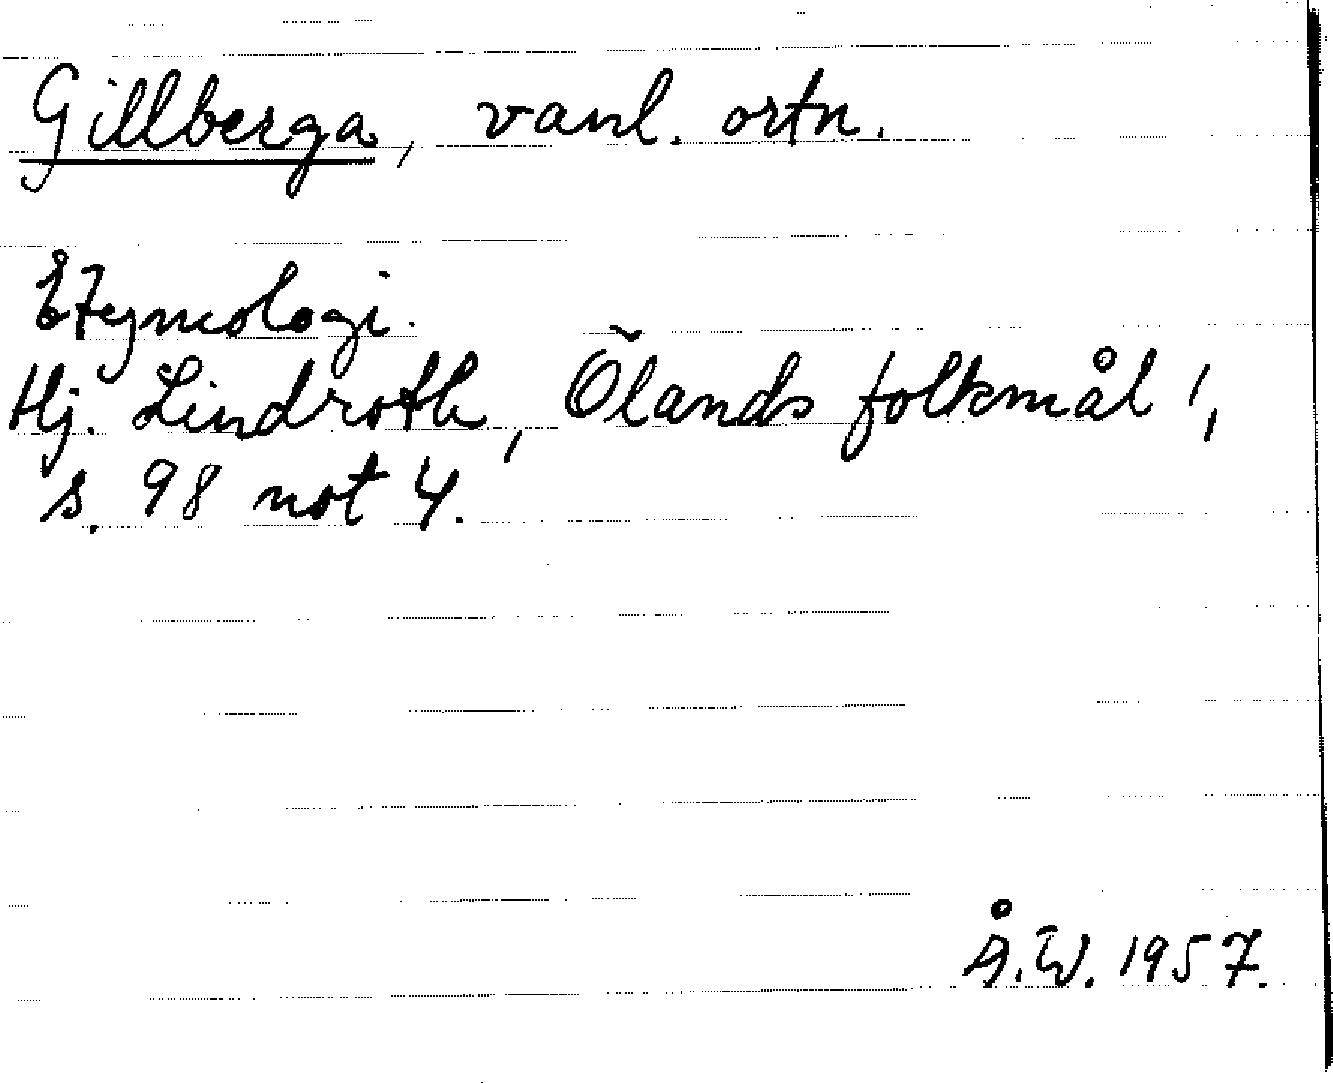 Gillberga, vanl. ortn.
Etymologi.
Hj. Lindroth, Ölands folkmål 1,
s. 98 not 4.
Å.W. 1957.